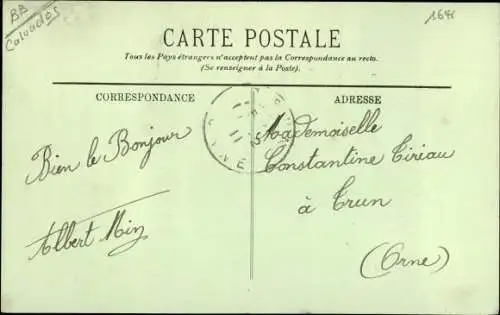 BB
Calvados
CARTE POSTALE
Tous les Pays étrangers n'acceptent pas la Correspondance au recto.
(Se renseigner à la Poste).
CORRESPONDANCE
ADRESSE
Bien le Bonjour
Albert
Mademoiselle
Constantine Tiriau
à Trun
(Orne)